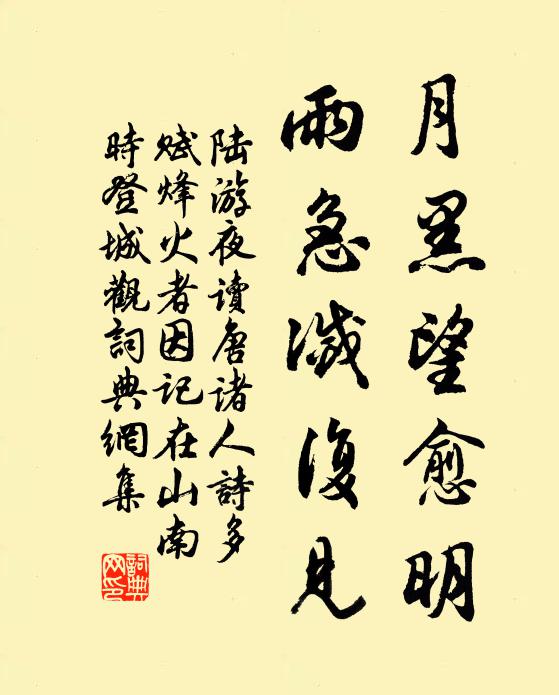 月黑望愈明
雨急滅復見
陆游夜讀唐諸人詩多
赋烽火者因记在山南
時登城觀詞典網集
詞典网印